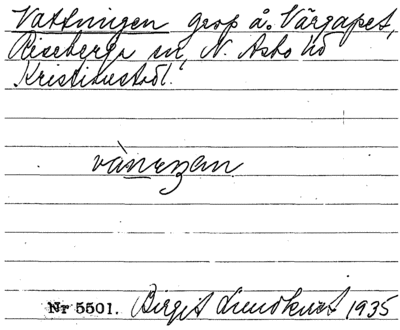 Vattningen grop å. Vårgapet,
Riseberga sn, N. Åsbo hd
Kristianstad l.
Nr 5501. Birgit Lundkvist 1935